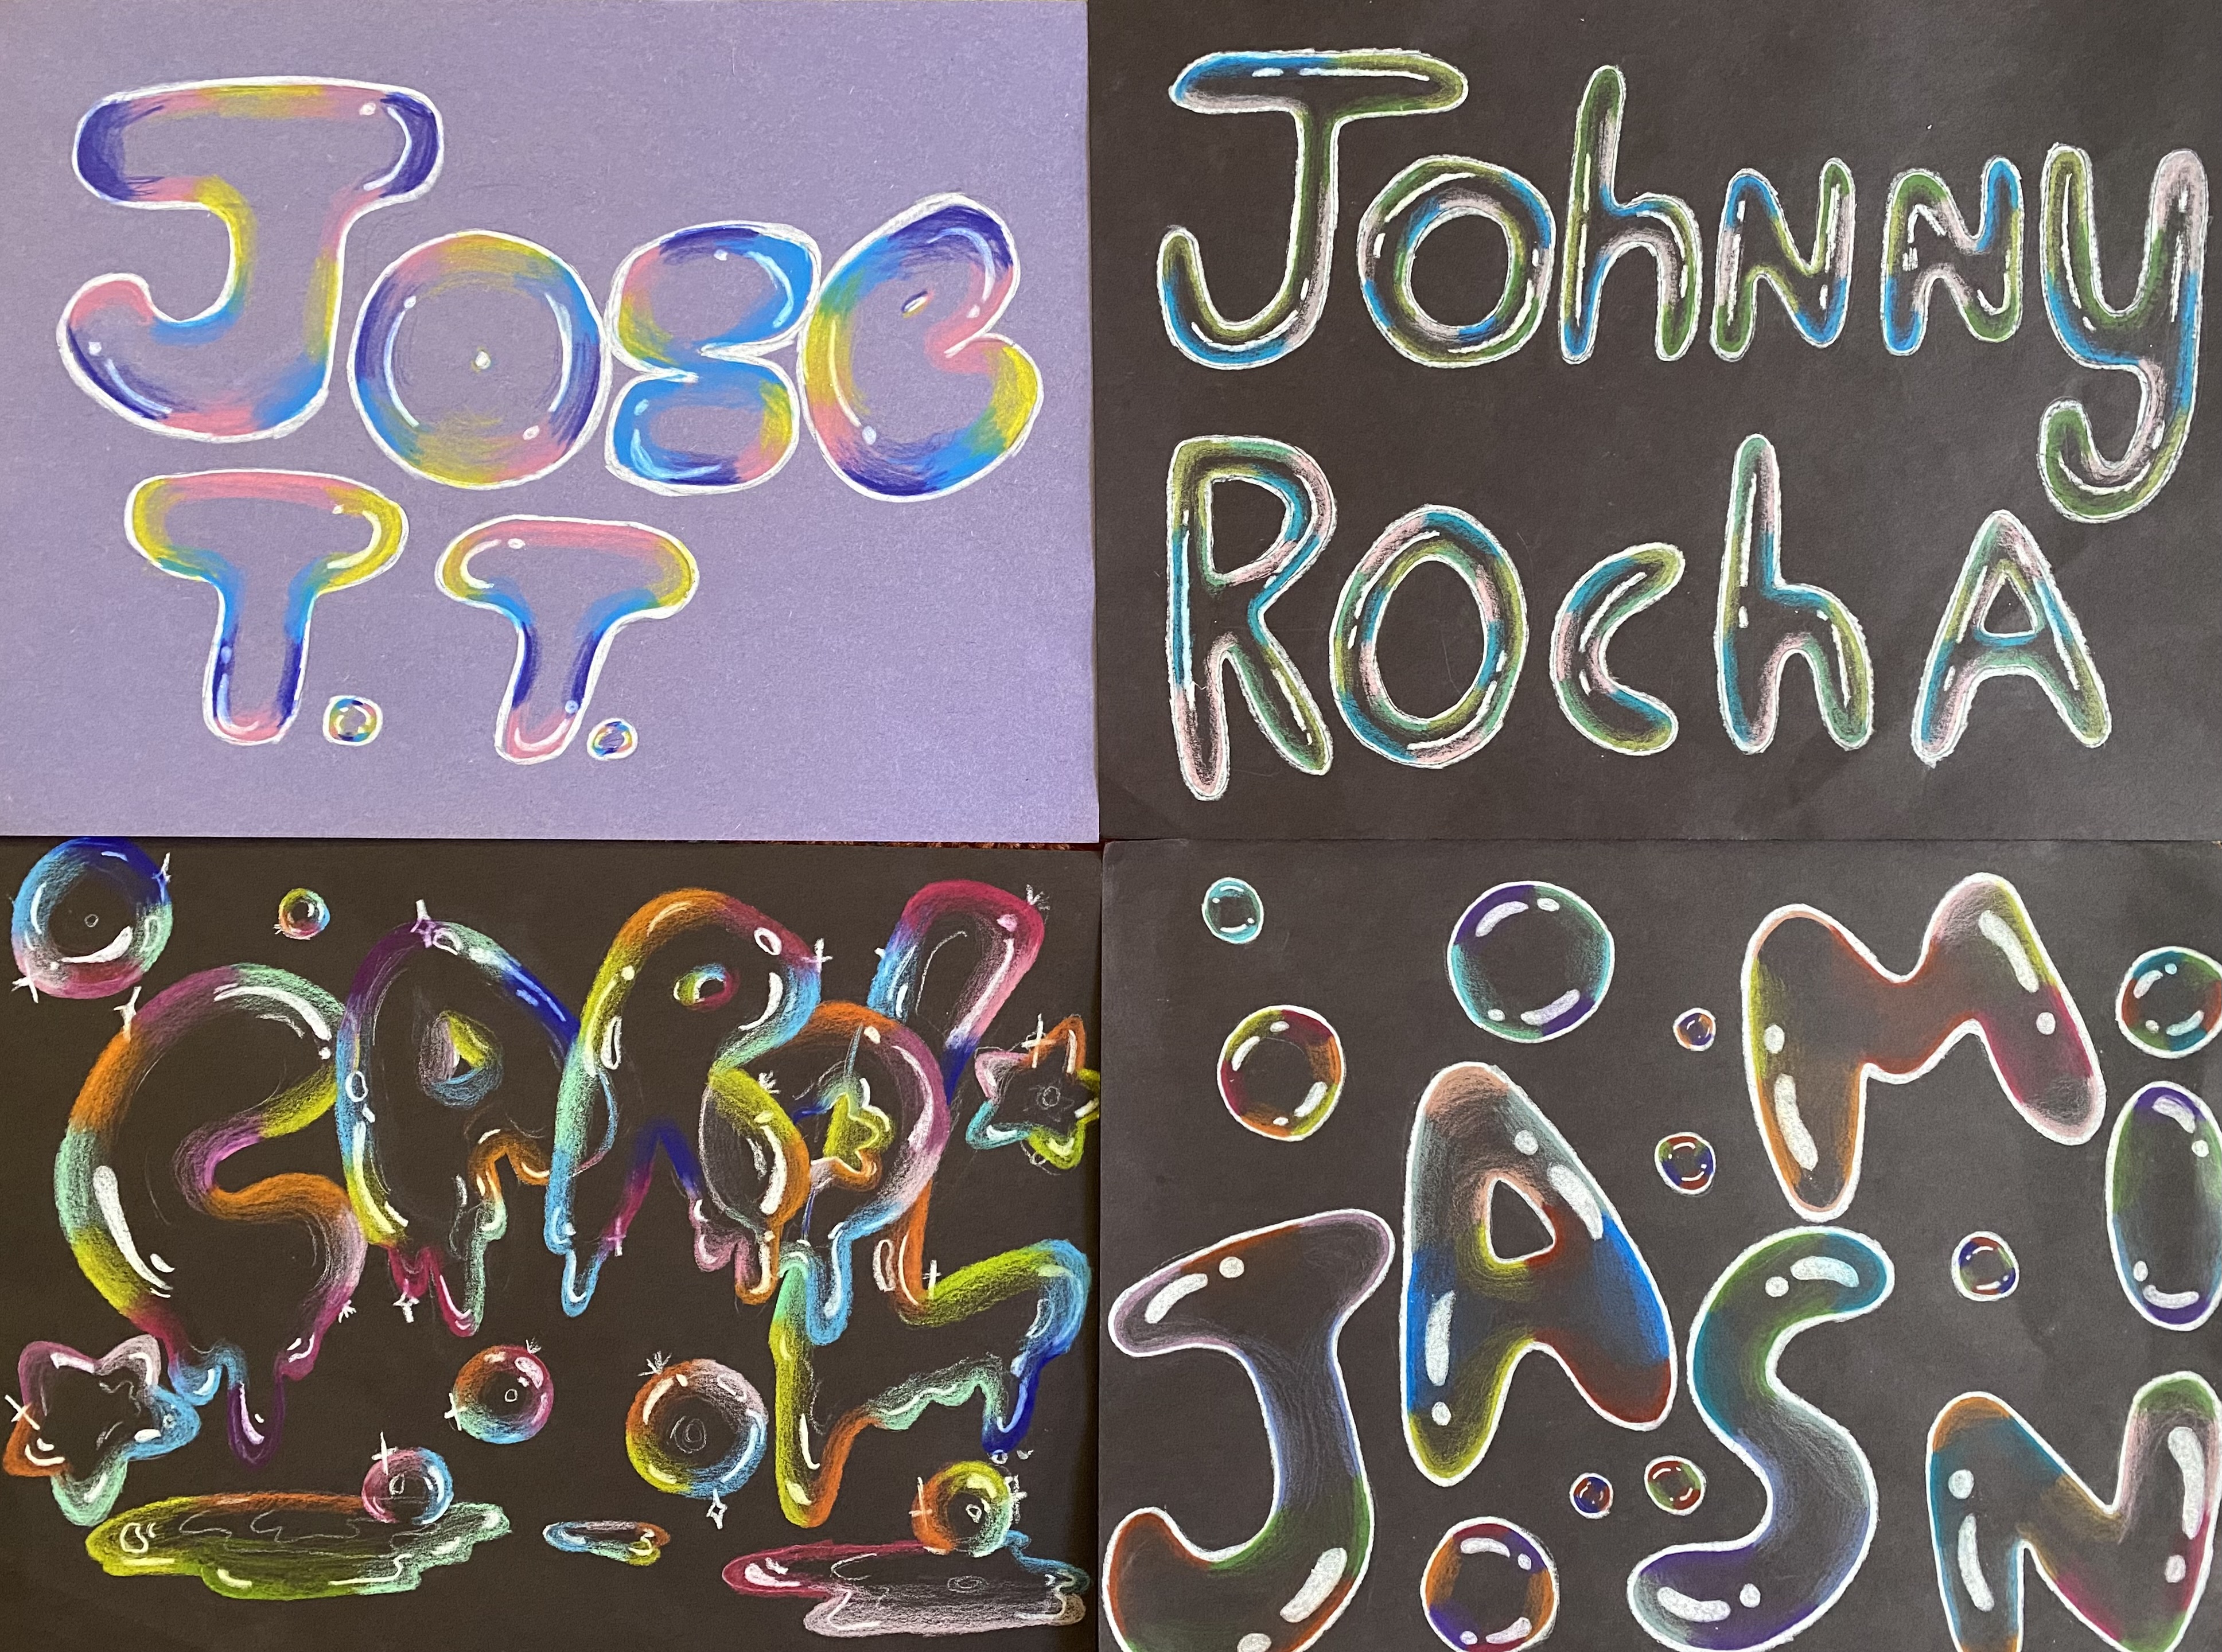 Jose
T. T.
JohNNy
RochA
CAROL
JASMiN